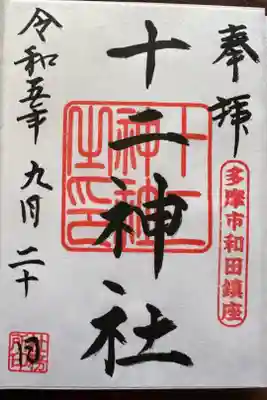 奉拝
多摩市和田鎮座
十二神社
十二神社之印
令和五年九月二十日